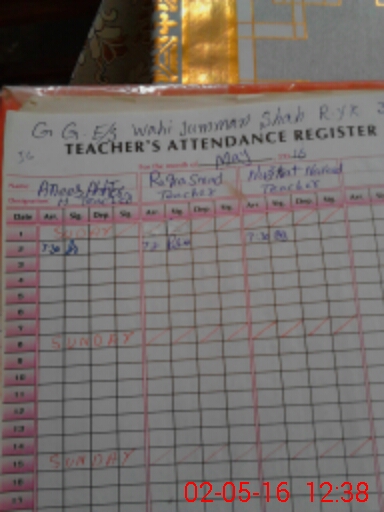 G G. E/S Wahi Jumman Shah R.Y.K
TEACHER'S ATTENDANCE REGISTER
For the month of May 16
Name
Designation Teacher Teacher
Date Arr. Sig. Dep. Sig. Arr. Sig. Dep. Sig. Arr. Sig. Dep. Sig.
1 SUNDAY
2 7:30 7:30
3
4
5
6
7
8 SUNDAY
9
10
11
12
13
14
15 SUNDAY
16
17
02-05-16 12:38